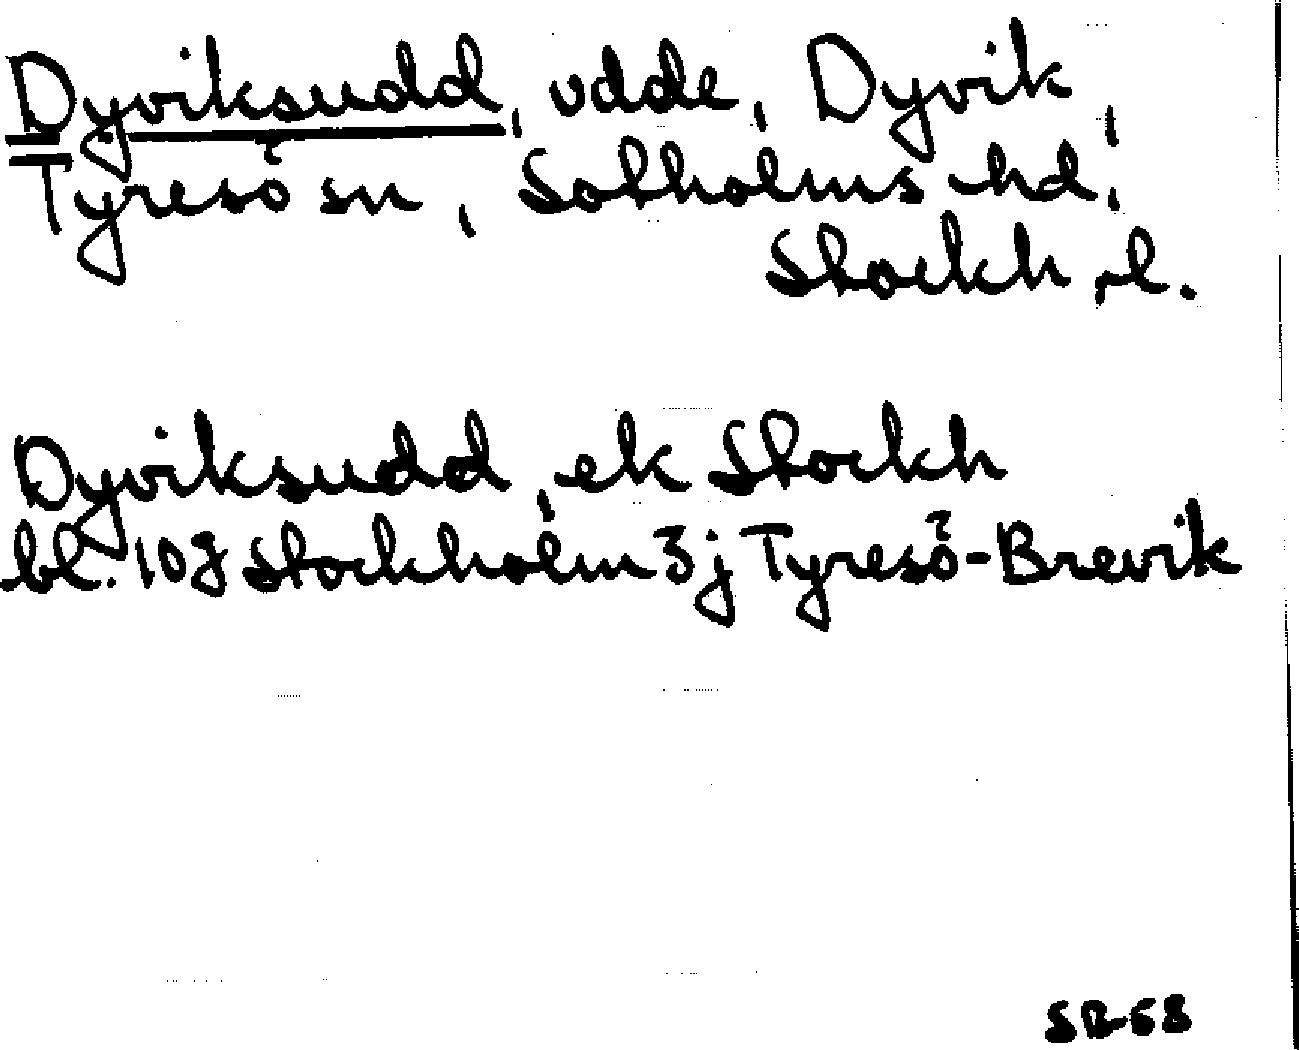 Dyviksudd, udde, Dyvik,
Tyresö sn, Sotholms hd,
Stockh. l.
Dyviksudd, ek Stockh
bl. 10g Stockholm 3j Tyresö-Brevik
SR-68